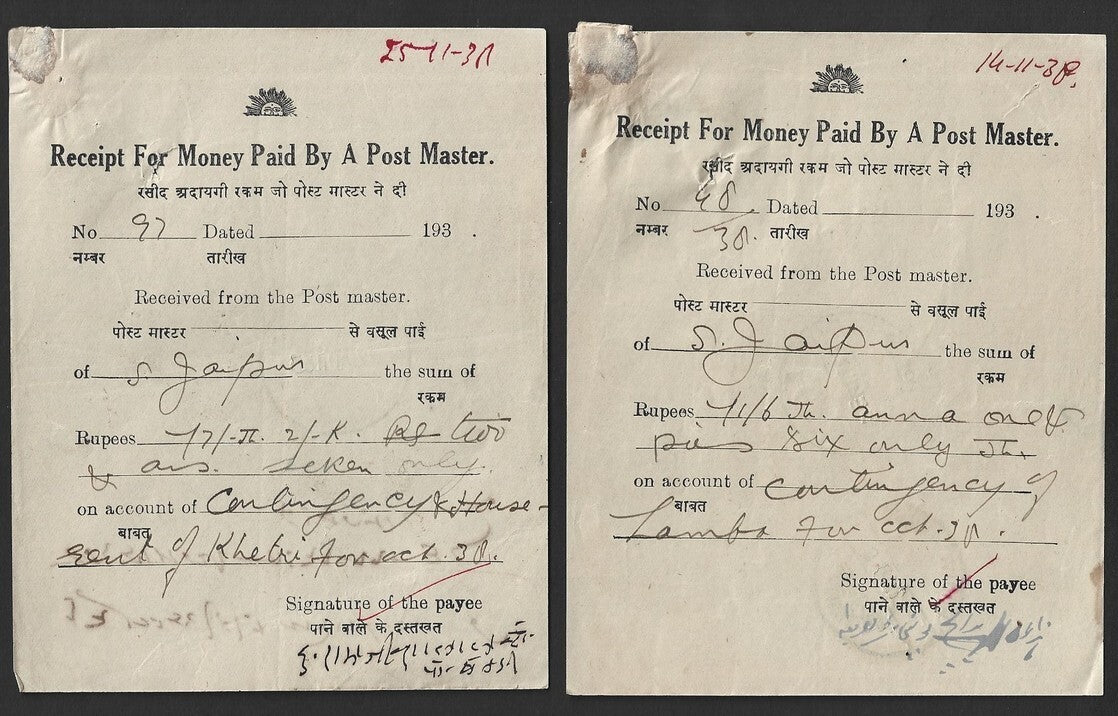 25-11-38
Receipt For Money Paid By A Post Master.
रसीद अदायगी रकम जो पोस्ट मास्टर ने दी
No 97 Dated 193 .
नम्बर तारीख
Received from the Post master.
पोस्ट मास्टर से वसूल पाई
of S. Jaipur the sum of
रकम
Rupees -/7/- Jh. 2/- K. Rs two
& ans. seven only.
on account of Contingency & House-
बाबत
rent of Khetri for oct 38.
Signature of the payee
पाने वाले के दस्तखत
14-11-38.
Receipt For Money Paid By A Post Master.
रसीद अदायगी रकम जो पोस्ट मास्टर ने दी
No 48 Dated 193 .
नम्बर 38. तारीख
Received from the Post master.
पोस्ट मास्टर से वसूल पाई
of S. Jaipur the sum of
रकम
Rupees -/1/6 Jh. anna one &
pies six only Jh.
on account of Contingency of
बाबत
Lamba for oct. 38.
Signature of the payee
पाने वाले के दस्तखत